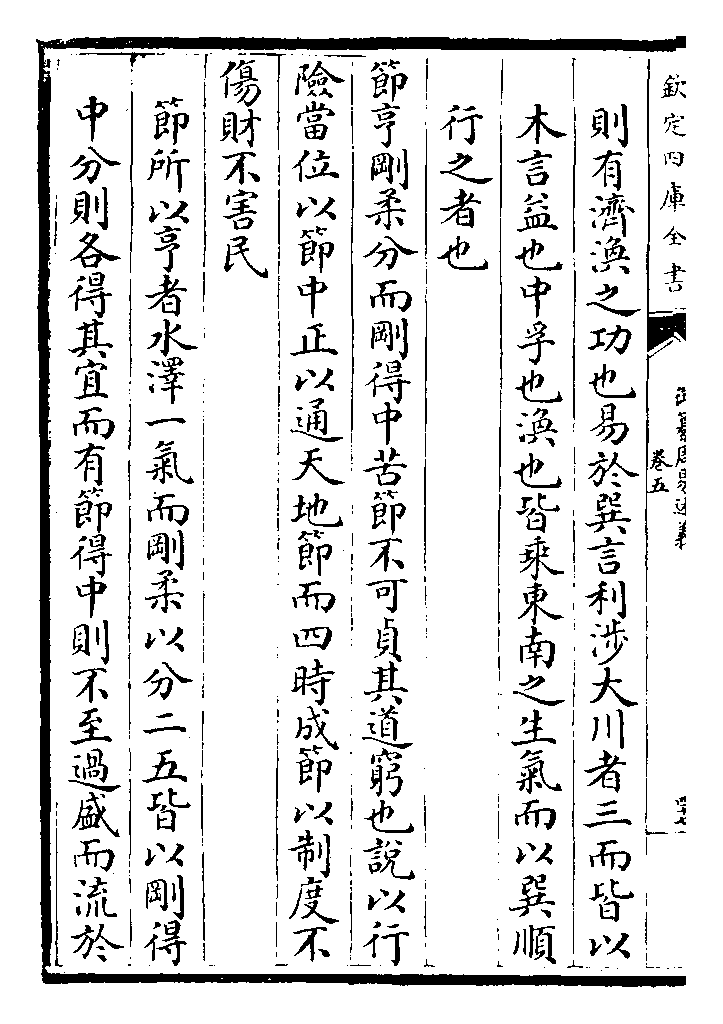 欽定四庫全書
御纂周易述義
卷五
四十七
則有濟渙之功也易於巽言利涉大川者三而皆以
木言益也中孚也渙也皆乘東南之生氣而以巽順
行之者也
節亨剛柔分而剛得中苦節不可貞其道窮也說以行
險當位以節中正以通天地節而四時成節以制度不
傷財不害民
節所以亨者水澤一氣而剛柔以分二五皆以剛得
中分則各得其宜而有節得中則不至過盛而流於